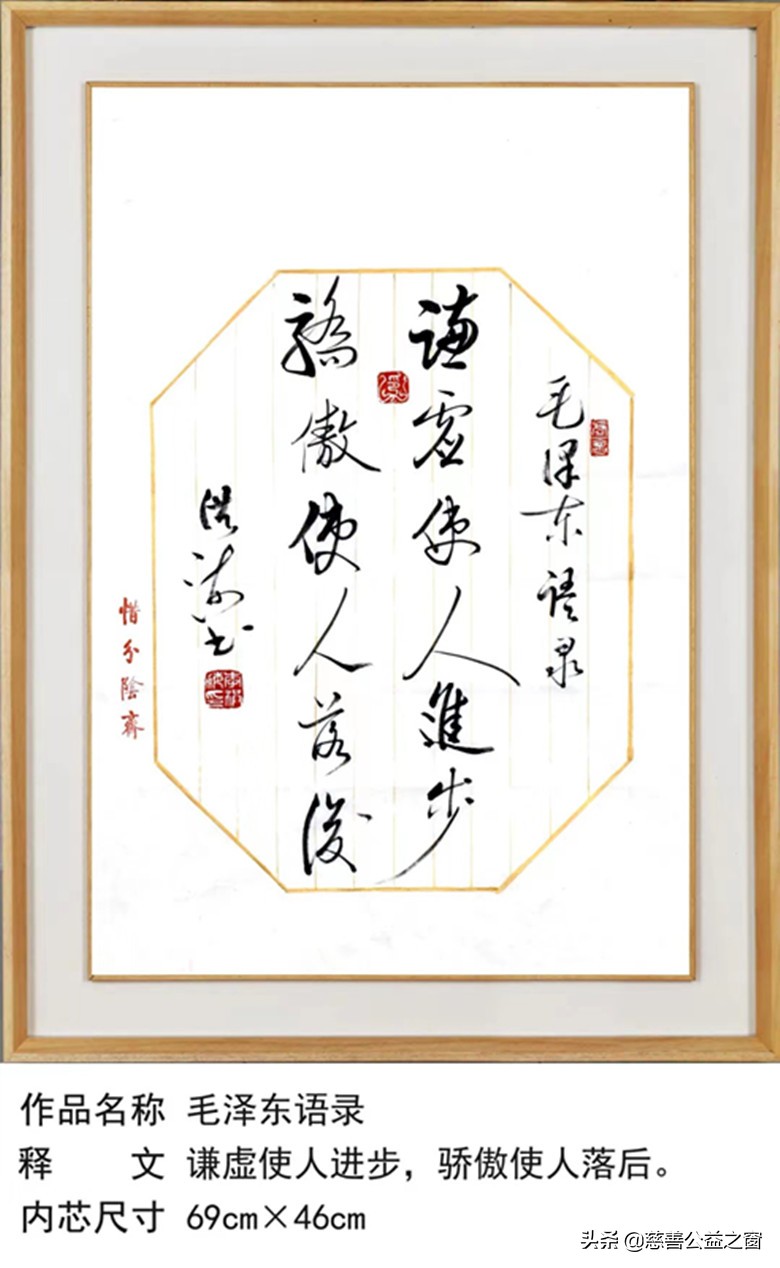 毛泽东语录
谦虚使人進步
驕傲使人落後
惜分陰齋
作品名称 毛泽东语录
释 文 谦虚使人进步，骄傲使人落后。
内芯尺寸 69cm×46cm
头条 @慈善公益之窗